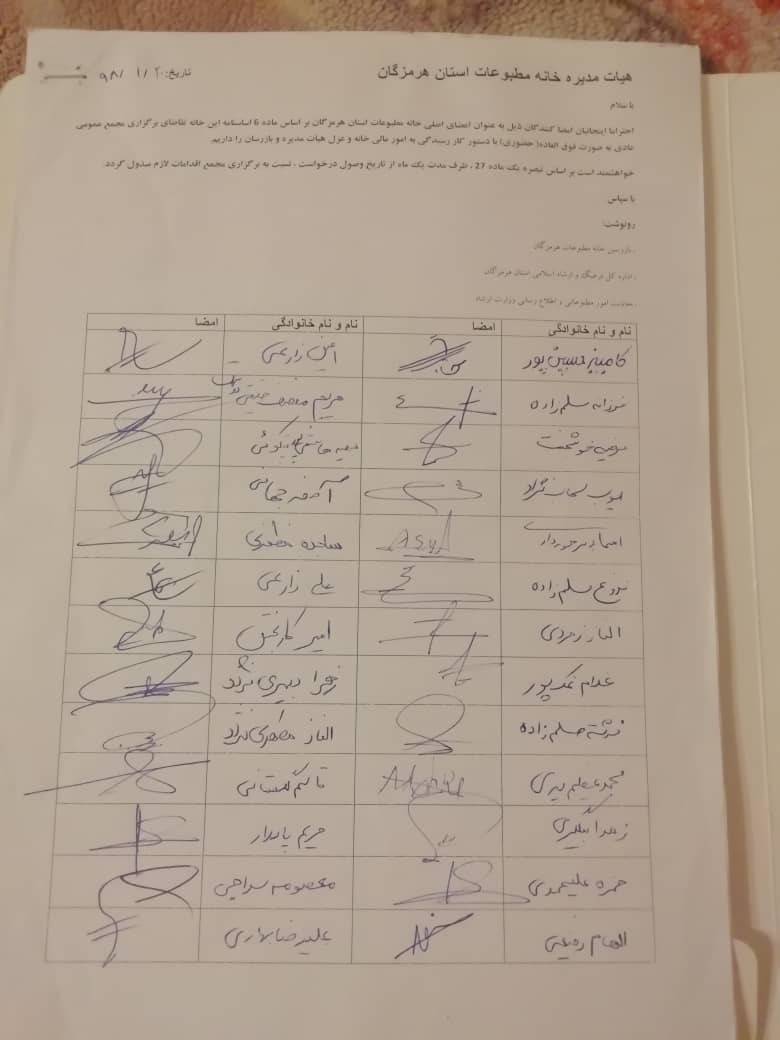 هیات مدیره خانه مطبوعات استان هرمزگان
تاریخ: ۹۸/۱/۲۰
با سلام
احتراما اینجانبان امضا کنندگان ذیل به عنوان اعضای اصلی خانه مطبوعات استان هرمزگان بر اساس ماده 6 اساسنامه این خانه تقاضای برگزاری مجمع عمومی
عادی به صورت فوق العاده( حضوری) با دستور کار رسیدگی به امور مالی خانه و عزل هیات مدیره و بازرسان را داریم.
خواهشمند است بر اساس تبصره یک ماده 27 ، ظرف مدت یک ماه از تاریخ وصول درخواست ، نسبت به برگزاری مجمع اقدامات لازم مبذول گردد.
با سپاس
رونوشت:
.بازرسین خانه مطبوعات هرمزگان
.اداره کل فرهنگ و ارشاد اسلامی استان هرمزگان
.معاونت امور مطبوعاتی و اطلاع رسانی وزارت ارشاد
نام و نام خانوادگی امضا نام و نام خانوادگی امضا
کامبیز حسین پور امین زارعی
فرزانه سلم زاده مریم
خوشبخت
ایوب
اسما برخوردار ساجده
سلم زاده علی زارعی
الناز امیر کاربخش
غلام نمک پور زهرا دبیری نژاد
فرشته سلم زاده الناز
محمد عظیم
زهرا مریم پایدار
حمزه علیمحمدی معصومه سراجی
الهام علیرضا بهاری